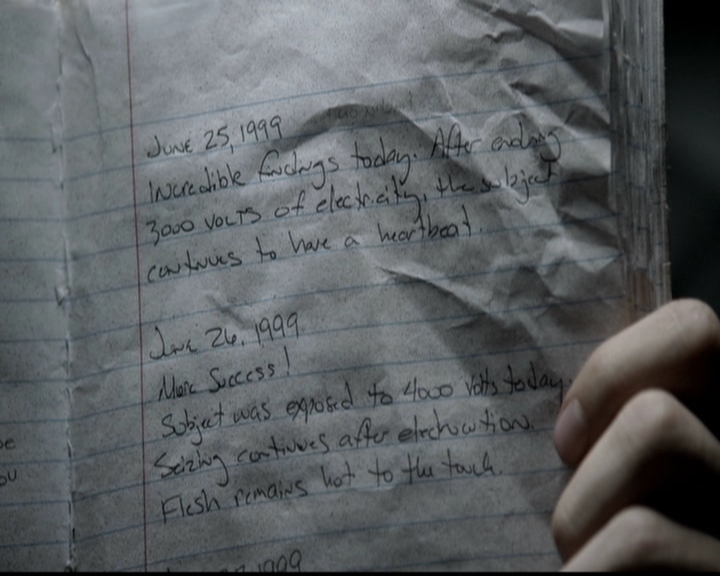 June 25, 1999
Incredible findings today. After ending
3000 volts of electricity, the subject
continues to have a heartbeat.
June 26, 1999
More Success!
Subject was exposed to 4000 volts today.
Seizing continues after electrocution.
Flesh remains hot to the touch.
1999
ou